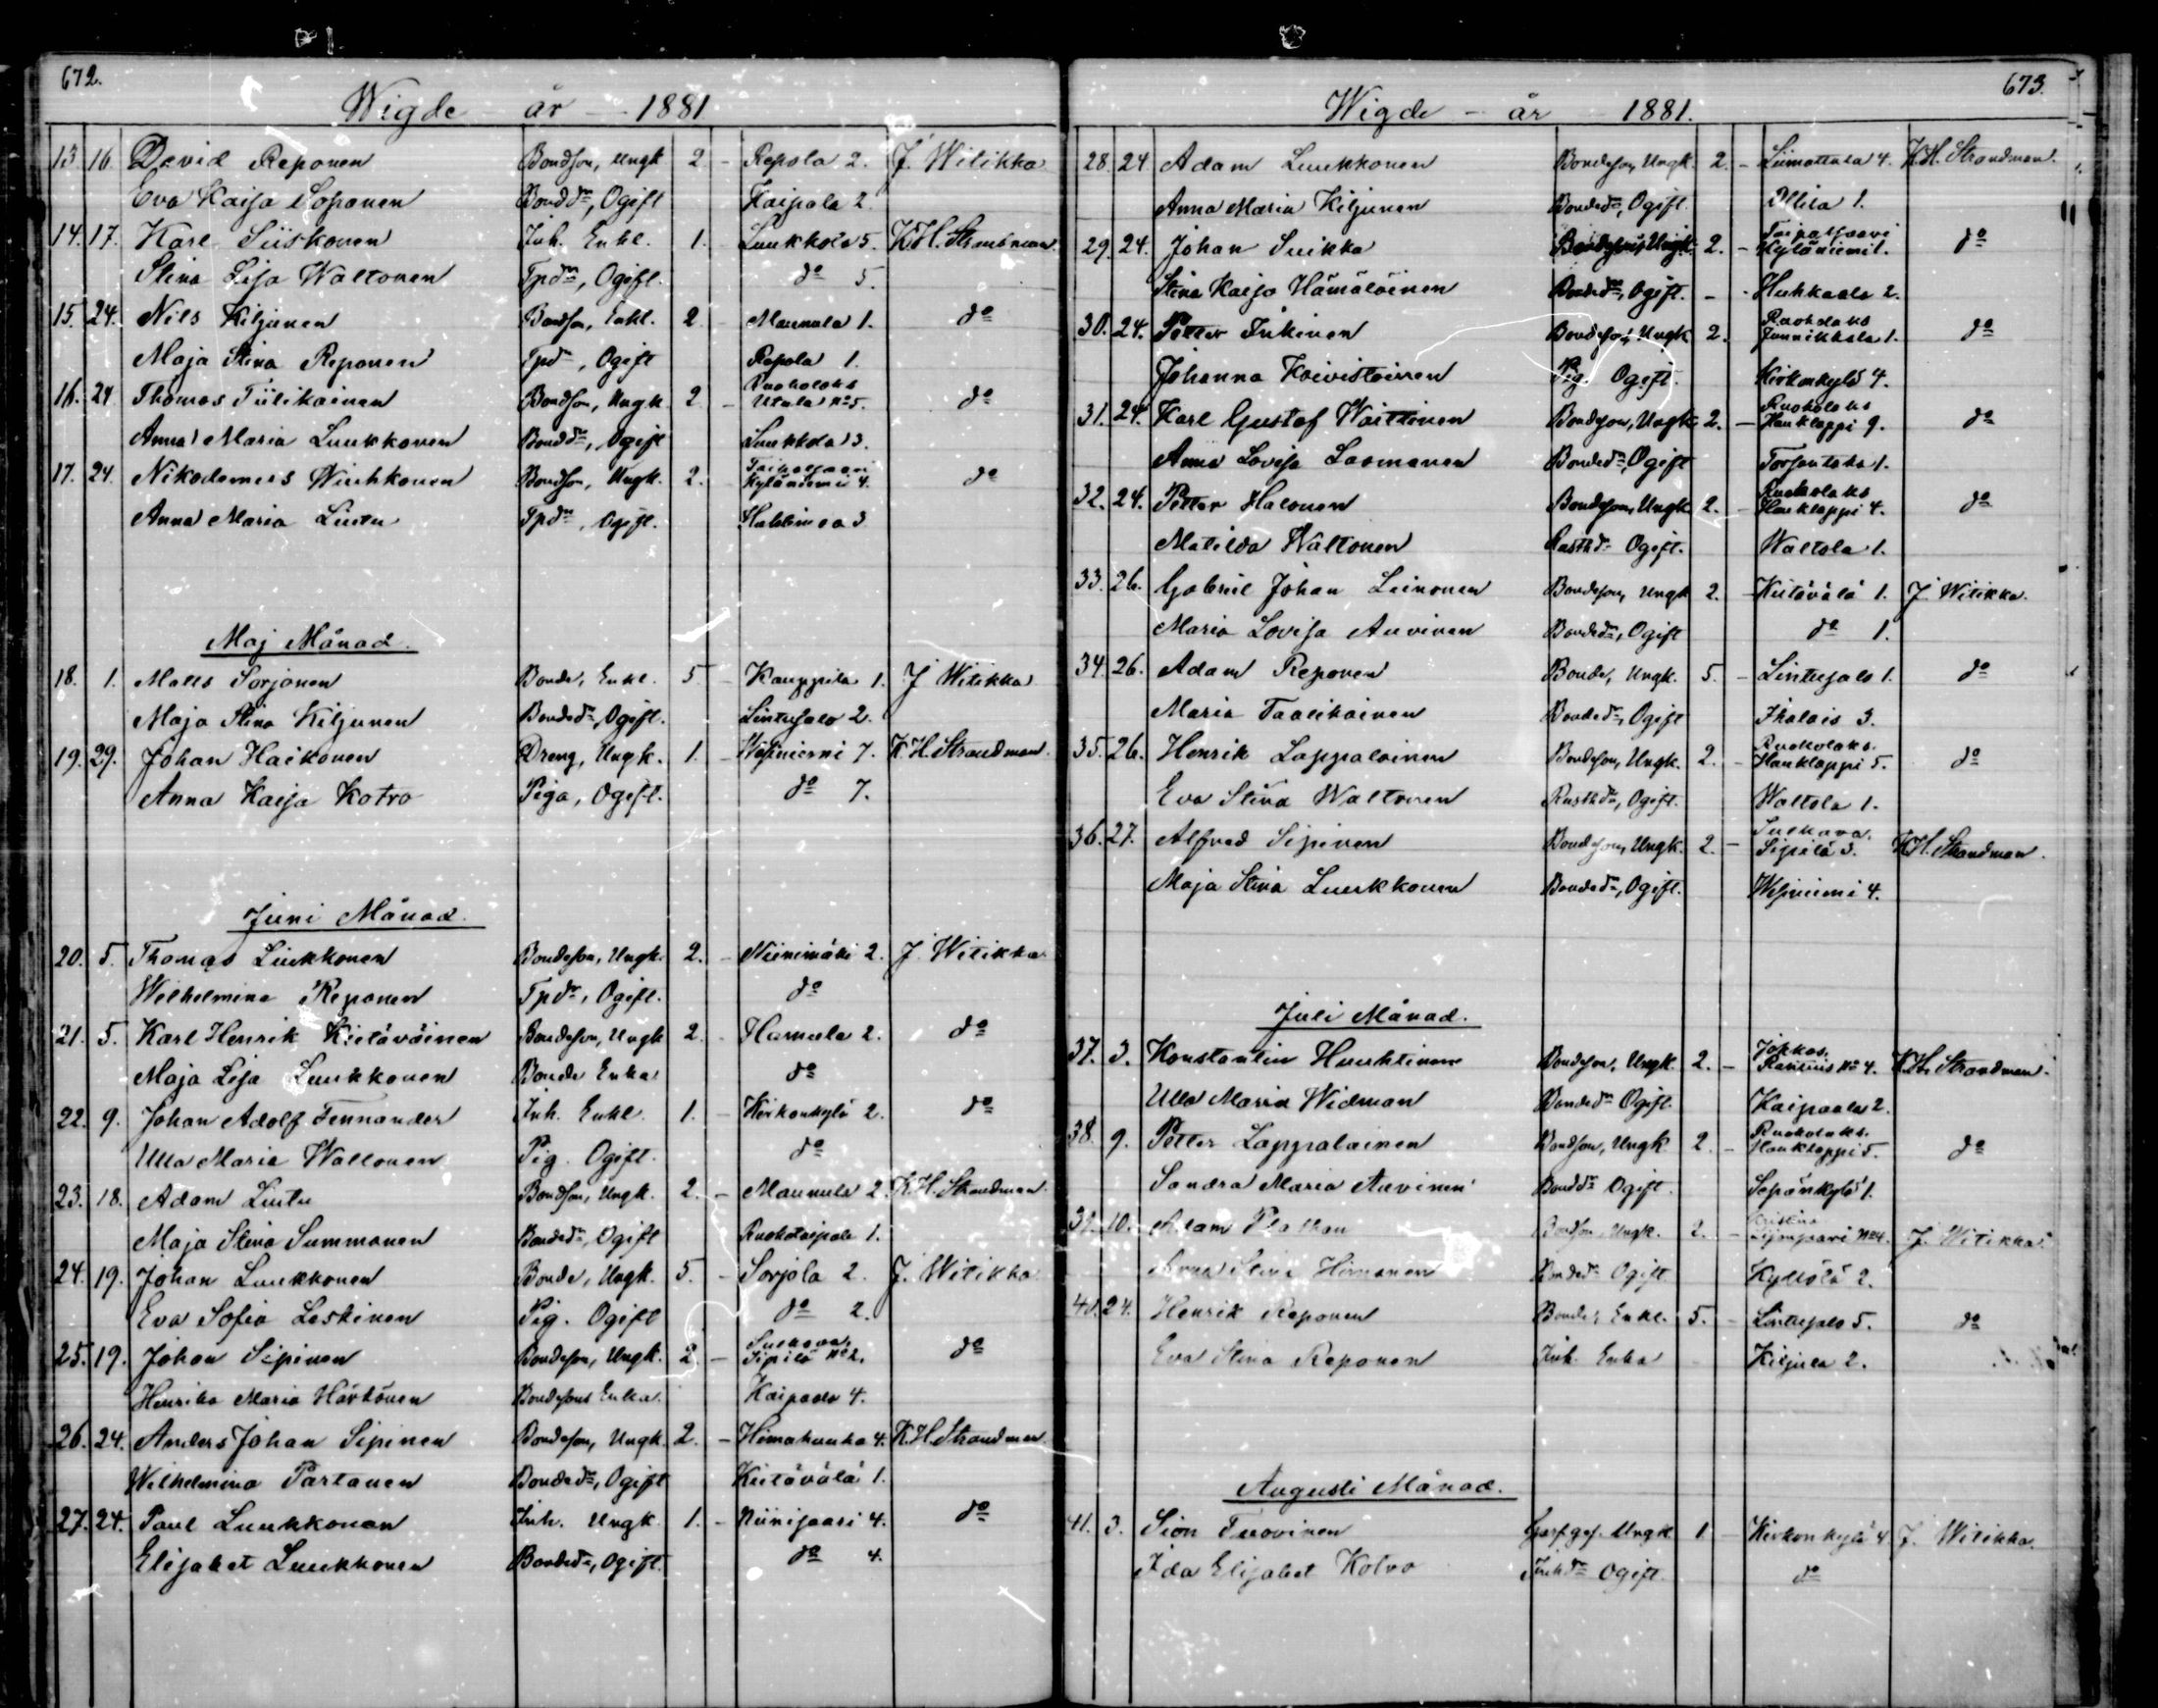 672.
Wigde år 1881
13 16 David Reponen Bondson, Ungk 2 - Repola 2. J. Witikka
Eva Kaisa Soponen Bondd:r, Ogift Kaipola 2
14. 17. Karl Siiskonen Inh. Enkl. 1. Luukkola 5. K.H. Strandman
Stina Lisa Waltonen Tpd:r, Ogift. d:o 5.
15. 24. Nils Kiljunen Bondson, Enkl. 2 - Maunula 1. d:o
Maja Stina Reponen Tpd:r, Ogift Repola 1.
16. 24 Thomas Tiilikainen Bondson, Ungk 2 - Ruokolaks Utula N:o 5. d:o
Anna Maria Luukkonen Bondd:r, Ogift Luukkola 3.
17. 24. Nikodemus Wiuhkonen Bondson, Ungk. 2. - Taipalsaari Kyläniemi 4. d:o
Anna Maria Lintu Tpd:r, Ogift. 3
Maj Månad.
18. 1. Matts Sorjonen Bonde, Enkl. 5 - Kauppila 1. J Witikka
Maja Stina Kiljunen Bonded:r, Ogift. Lintusalo 2.
19. 29. Johan Haikonen Dreng, Ungk. 1. - Wesiniemi 7. K.H. Strandman.
Anna Kaisa Kotro Piga, Ogift. d:o 7.
Juni Månad.
20. 5. Thomas Liukkonen Bondeson, Ungk. 2. - Niinimäki 2. J. Witikka
Wilhelmina Reponen Tpd:r, Ogift. d:o
21. 5. Karl Henrik Kietäväinen Bondeson, Ungk 2. - Hamula 2. d:o
Maja Lisa Luukkonen Bonde Enka d:o
22. 9. Johan Adolf Fennander Inh. Enkl. 1. - Kirkonkylä 2. d:o
Ulla Maria Waltonen Pig. Ogift. d:o
23. 18. Adam Lintu Bondson, Ungk. 2. - Maunula 2 K.H. Strandman.
Maja Stina Summanen Bonded:r, Ogift Ruokotaipale 1.
24. 19. Johan Luukkonen Bonde, Ungk. 5. - Sorjola 2. J. Witikka
Eva Sofia Leskinen Pig. Ogift d:o 2.
25. 19. Johan Sipinen Bondeson, Ungk. 2 - Sulkava Sipilä N:o 2. d:o
Henrika Maria Härkönen Bondesons Enka. Kaipaala 4.
26. 24. Anders Johan Sipinen Bondeson, Ungk. 2. - Himahuuha 4. K.H. Strandman
Wilhelmina Partanen Bonded:r, Ogift Kietävälä 1.
27. 24. Paul Luukkonen Inh. Ungk. 1. - Niinisaari 4. d:o
Elisabet Luukkonen Bonded:r, Ogift. d:o 4.
673.
Wigde - år 1881.
28. 24 Adam Luukkonen Bondeson, Ungk. 2. - Liimattala 4. K.H. Strandman.
Anna Maria Kiljunen Bonded:r, Ogift. 1.
29. 24. Johan Suikka Bondeson, Ungk. 2. - Taipalsaari Kyläniemi 1. d:o
Stina Kaisa Hämäläinen Bonded:r, Ogift. - Huhkaala 2.
30. 24. Petter Inkinen Bondeson, Ungk 2. Ruokolaks Junnikkala 1. d:o
Johanna Koivistoinen Pig. Ogift. Kirkonkylä 4.
31. 24. Karl Gustaf Waittinen Bondeson, Ungk 2. - Ruokolaks Haukloppi 9. d:o
Anna Lovisa Laamanen Bonded:r, Ogift 1.
32. 24. Petter Halonen Bondeson, Ungk 2. - Ruokolaks Haukloppi 4. d:o
Matilda Waltonen Rusthd:r Ogift. Waltola 1.
33. 26. Gabriel Johan Leinonen Bondeson, Ungk 2. - Kietävälä 1. J. Witikka.
Maria Lovisa Auvinen Bonded:r, Ogift d:o 1.
34. 26. Adam Reponen Bonde, Ungk. 5. - Lintusalo 1. d:o
Maria Taalikainen Bonded:r, Ogift Ihalais 3.
35. 26. Henrik Lappalainen Bondeson, Ungk. 2. - Ruokolaks. Haukloppi 5. d:o
Eva Stina Waltonen Rusthd:r, Ogift. Waltola 1.
36. 27. Alfred Sipinen Bondeson, Ungk. 2. - Sulkava. Sipilä 3. K.H. Strandman.
Maja Stina Luukkonen Bonded:r, Ogift. Wesiniemi 4.
Juli Månad.
37. 3. Konstantin Huuhtinen Bondeson, Ungk. 2. - Jokkas. N:o 4. K.H. Strandman.
Ulla Maria Widman Bonded:r Ogift. Kaipaala 2.
38. 9. Petter Lappalainen Bondson, Ungk 2 - Ruokolaks. Haukloppi 5. d:o
Sandra Maria Auvinen Bondd:r Ogift. Sopänkylä 1.
39. 10. Adam Bondson, Ungk. 2. - Kristina N:o 4. J. Witikka
Anna Stina Himanen Bonded:r Ogift Kyllölä 2.
40. 24. Henrik Reponen Bonde, Enkl. 5. - Lintusalo 5. d:o
Eva Stina Reponen Inh. Enka Kiljula 2.
Augusti Månad.
41. 3. Sion Tuovinen Ungk 1 - Kirkonkylä 4 J. Witikka.
Ida Elisabet Kotro Inhd:r Ogift. d:o